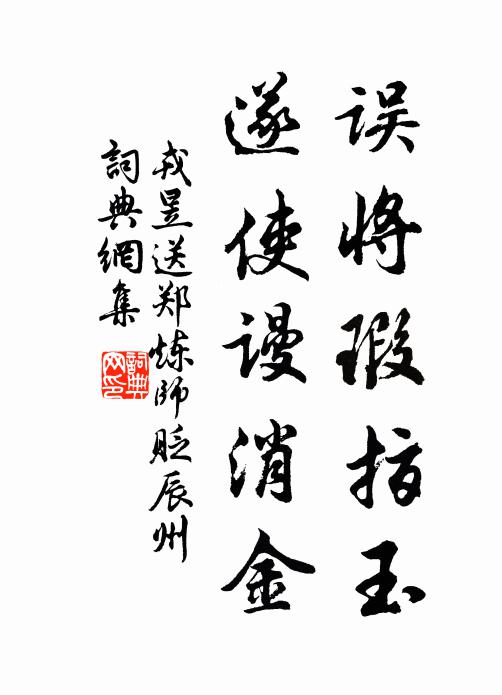 误将瑕指玉
遂使谩消金
戎昱送郑炼师贬辰州
词典網集
詞典网印